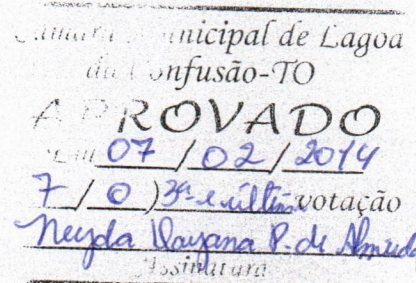 Câmara Municipal de Lagoa
da Confusão-TO
APROVADO
Em 07 / 02 / 2014
7 / 0 ) 3ª e última votação
Neyda Dayana P. de Almeida
Assinatura